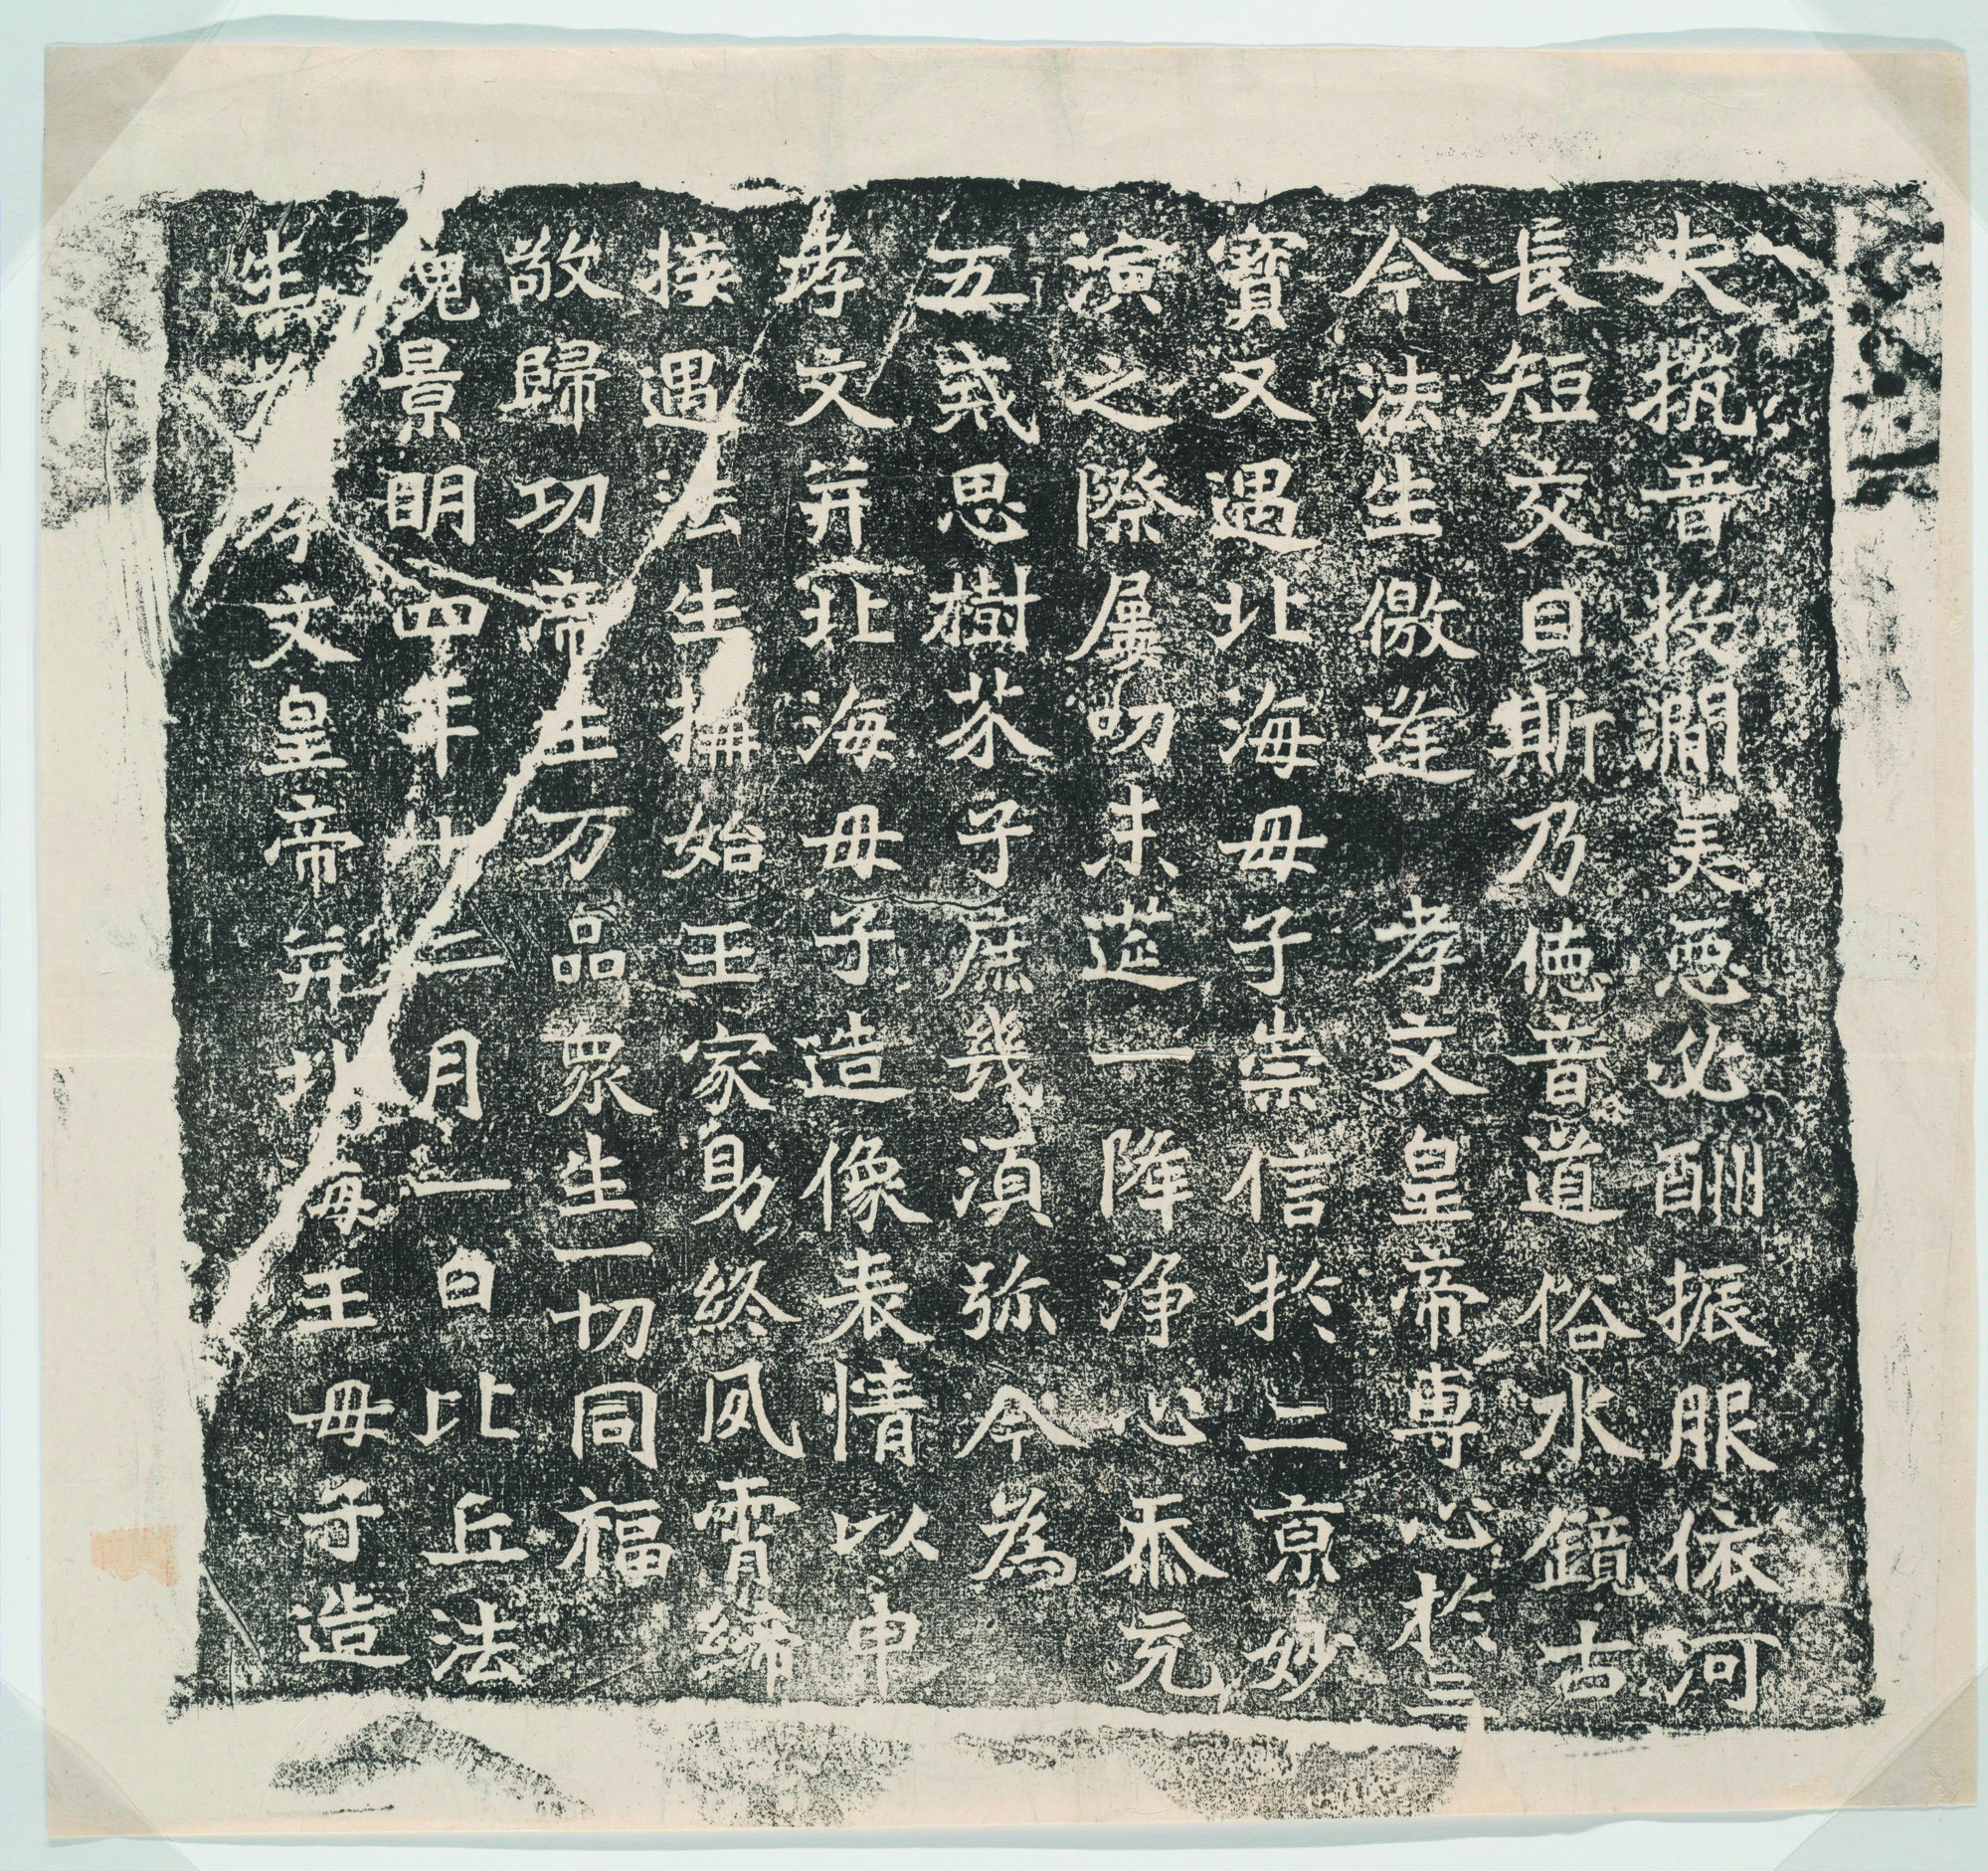 夫抗音投澗美惡必酬振服依河
長短交目斯乃德音道俗水鏡古
今法生儌逢孝文皇帝專心於三
寶又遇北海母子崇信於二京妙
演之際屢叨末筵一降淨心忝充
五戒思樹芥子庶幾須弥今為
孝文并北海母子造像表情以申
接遇法生構始王家助終夙霄締
敬歸功帝王万品衆生一切同福
魏景明四年十二月一日比丘法
生為孝文皇帝并北海王母子造